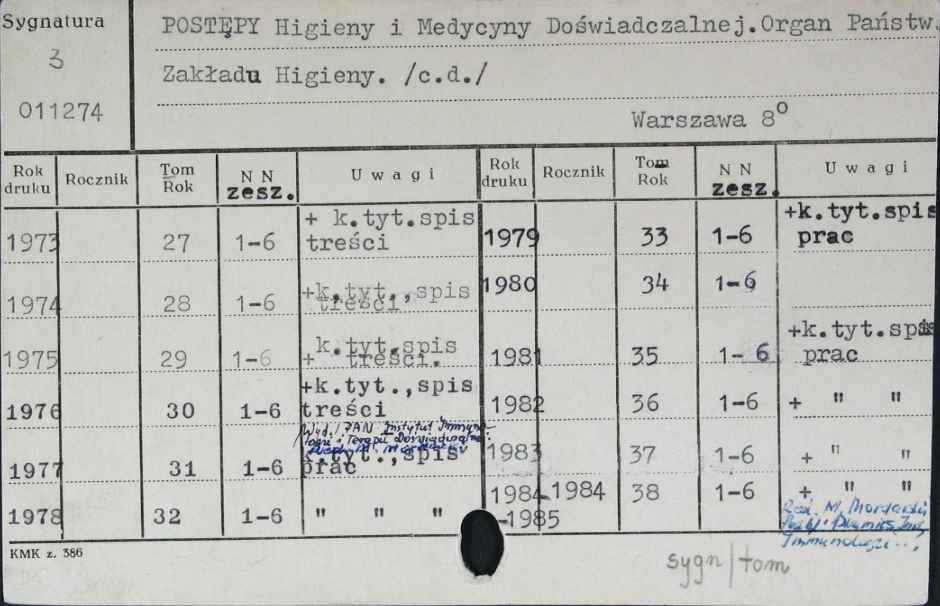 Sygnatura
3
011274
POSTĘPY Higieny i Medycyny Doświadczalnej.Organ Państw.
Zakładu Higieny. /c.d./
Warszawa 8°
Rok druku Rocznik Tom Rok N N zesz. Uwagi Rok druku Rocznik Tom Rok N N zesz. Uwagi
1973 27 1-6 + k.tyt.spis treści
1974 28 1-6 +k.tyt.,spis treści.
1975 29 1-6 + k.tyt.spis treści.
1976 30 1-6 +k.tyt.,spis treści
Wyd. PAN Instytut Immunologii i Terapii Doświadczalnej
1977 31 1-6 k.tyt.,spis prac
1978 32 1-6 " " "
1979 33 1-6 +k.tyt.spis prac
1980 34 1-6
1981 35 1-6 +k.tyt.spis prac
1982 36 1-6 + " "
1983 37 1-6 + " "
1984-1985 1984 38 1-6 + " "
Red. M. Mordarski
Immunologii
KMK z. 386
sygn/tom